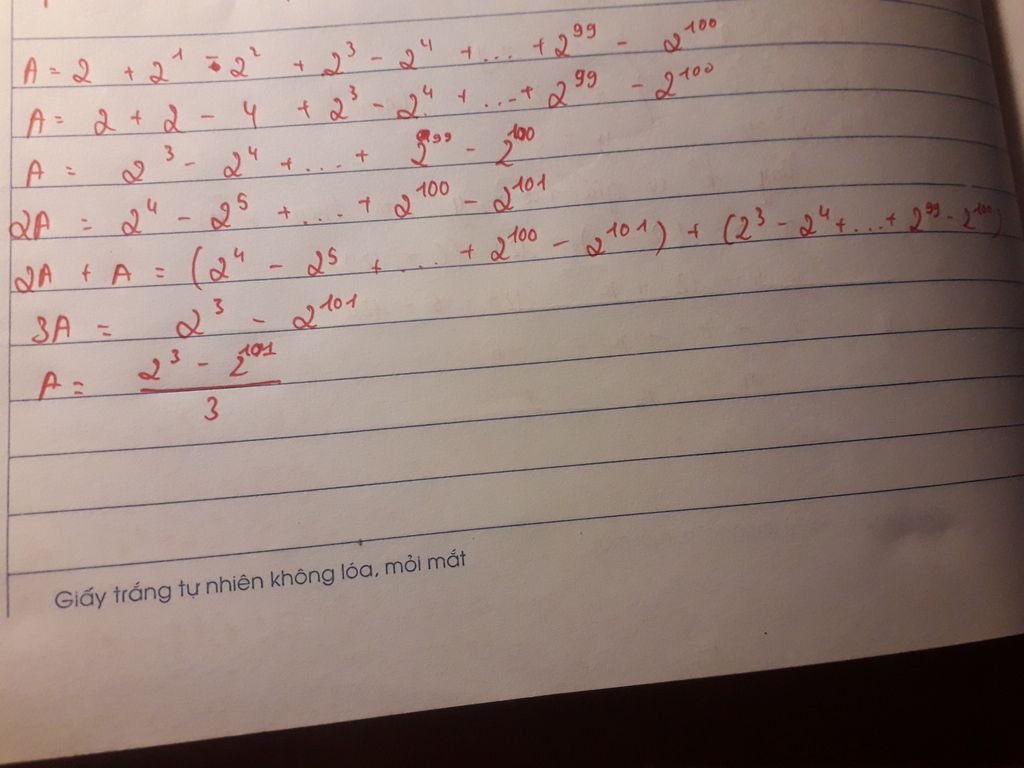 A = 2 + 2¹ - 2² + 2³ - 2⁴ + ... + 2⁹⁹ - 2¹⁰⁰
A = 2 + 2 - 4 + 2³ - 2⁴ + ... + 2⁹⁹ - 2¹⁰⁰
A = 2³ - 2⁴ + ... + 2⁹⁹ - 2¹⁰⁰
2A = 2⁴ - 2⁵ + ... + 2¹⁰⁰ - 2¹⁰¹
2A + A = (2⁴ - 2⁵ + ... + 2¹⁰⁰ - 2¹⁰¹) + (2³ - 2⁴ + ... + 2⁹⁹ - 2¹⁰⁰)
3A = 2³ - 2¹⁰¹
A = (2³ - 2¹⁰¹)/3
Giấy trắng tự nhiên không lóa, mỏi mắt